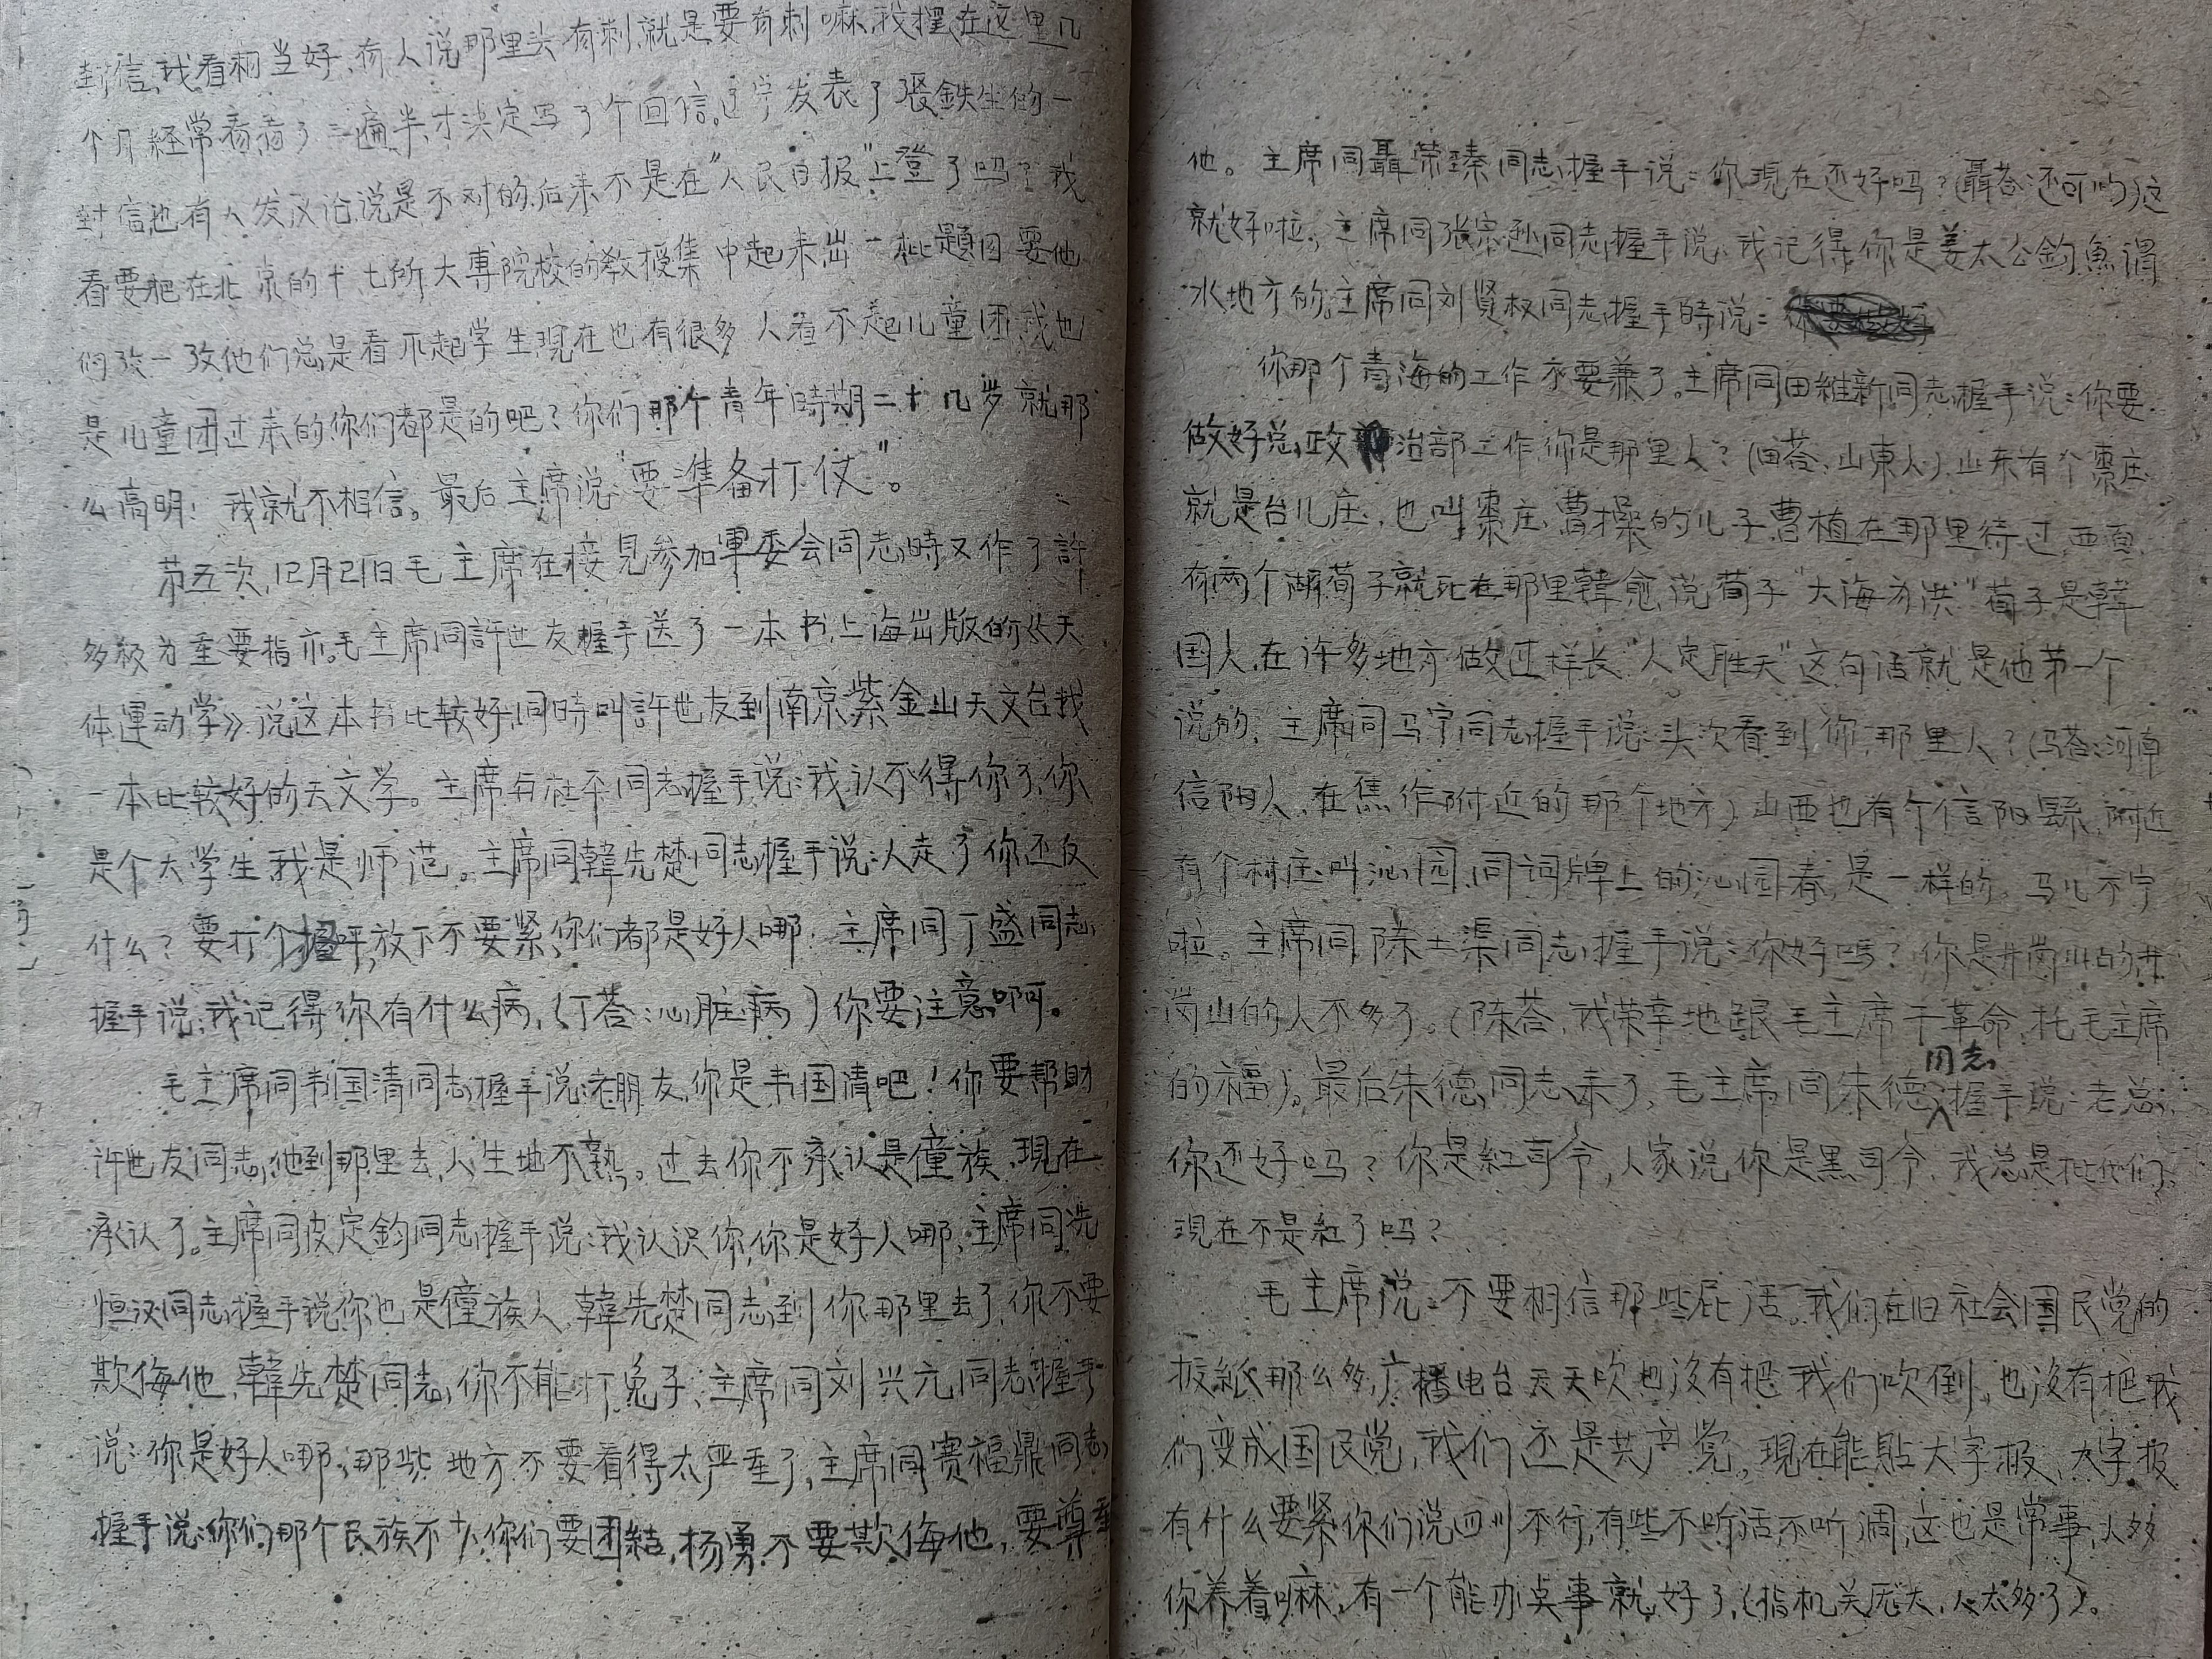 封信,我看相当好,有人说那里头有刺,就是要有刺嘛,我摆在这里几
个月经常看,看了三遍半,才决定写了个回信。辽宁发表了張鉄生的一
封信,也有人发议论说是不对的,后来不是在“人民日报”上登了吗?我
看要把在北京的十七所大專院校的教授集中起来出一批題目要他
们攷一攷他们总是看不起学生,現在也有很多人看不起儿童团,我也
是儿童团过来的,你们都是的吧?你们那个青年時期二十几岁就那
么高明!我就不相信。最后主席说“要準备打仗”。
第五次,12月21日毛主席在接見参加軍委会同志時又作了許
多极为重要指示。毛主席同許世友握手送了一本书,上海出版的《天
体運动学》说这本书比较好,同時叫許世友到南京紫金山天文台找
一本比较好的天文学。主席与杜平同志握手说:我认不得你了,你
是个大学生,我是师范。主席同韓先楚同志握手说:人走了你还反
什么?要打个招呼,放下不要紧,你们都是好人哪。主席同丁盛同志
握手说:我记得你有什么病,(丁荅:心脏病)你要注意啊。
毛主席同韦国清同志握手说:老朋友,你是韦国清吧!你要帮助
許世友同志,他到那里去,人生地不熟。过去你不承认是僮族,現在
承认了。主席同皮定鈞同志握手说:我认识你,你是好人哪,主席同冼
恒汉同志握手说你也是僮族人,韓先楚同志到你那里去了,你不要
欺侮他,韓先楚同志,你不能打兔子;主席同刘兴元同志握手
说:你是好人哪,那些地方不要看得太严重了,主席同赛福鼎同志
握手说:你们那个民族不少,你们要团結,杨勇不要欺侮他,要尊重
他。主席同聶荣臻同志握手说:你現在还好吗?(聶荅:还可以)这
就好啦,主席同张宗逊同志握手说,我记得你是姜太公釣魚谓
水地方的,主席同刘贤权同志握手時说:
你那个青海的工作不要兼了。主席同田維新同志握手说:你要
做好总政治部工作,你是那里人?(田荅:山東人),山东有个棗庄
就是台儿庄,也叫棗庄,曹操的儿子曹植在那里待过,西面
有两个湖荀子就死在那里韓愈说荀子“大海为洪”荀子是韓
国人,在许多地方做过祥长“人定胜天”这句话就是他第一个
说的,主席同马宁同志握手说:头次看到你,那里人?(马荅:河南
信阳人,在焦作附近的那个地方)山西也有个信阳縣,附近
有个村庄叫沁园,同词牌上的沁园春,是一样的。马儿不宁
啦。主席同陈士渠同志握手说:你好吗?你是井岗山的,井
岗山的人不多了。(陈荅,我荣幸地跟毛主席干革命,托毛主席
的福)。最后朱德同志来了,毛主席同朱德同志握手说:老总,
你还好吗?你是紅司令,人家说你是黑司令,我总是批他们,
現在不是紅了吗?
毛主席说:不要相信那些屁话。我们在旧社会国民党的
报紙那么多,广播电台天天吹也没有把我们吹倒,也没有把我
们变成国民党,我们还是共产党,現在能貼大字报,大字报
有什么要紧,你们说四川不行,有些不听话不听调,这也是常事,人多
你养着嘛,有一个能办点事就好了,(指机关厐大,人太多了)。